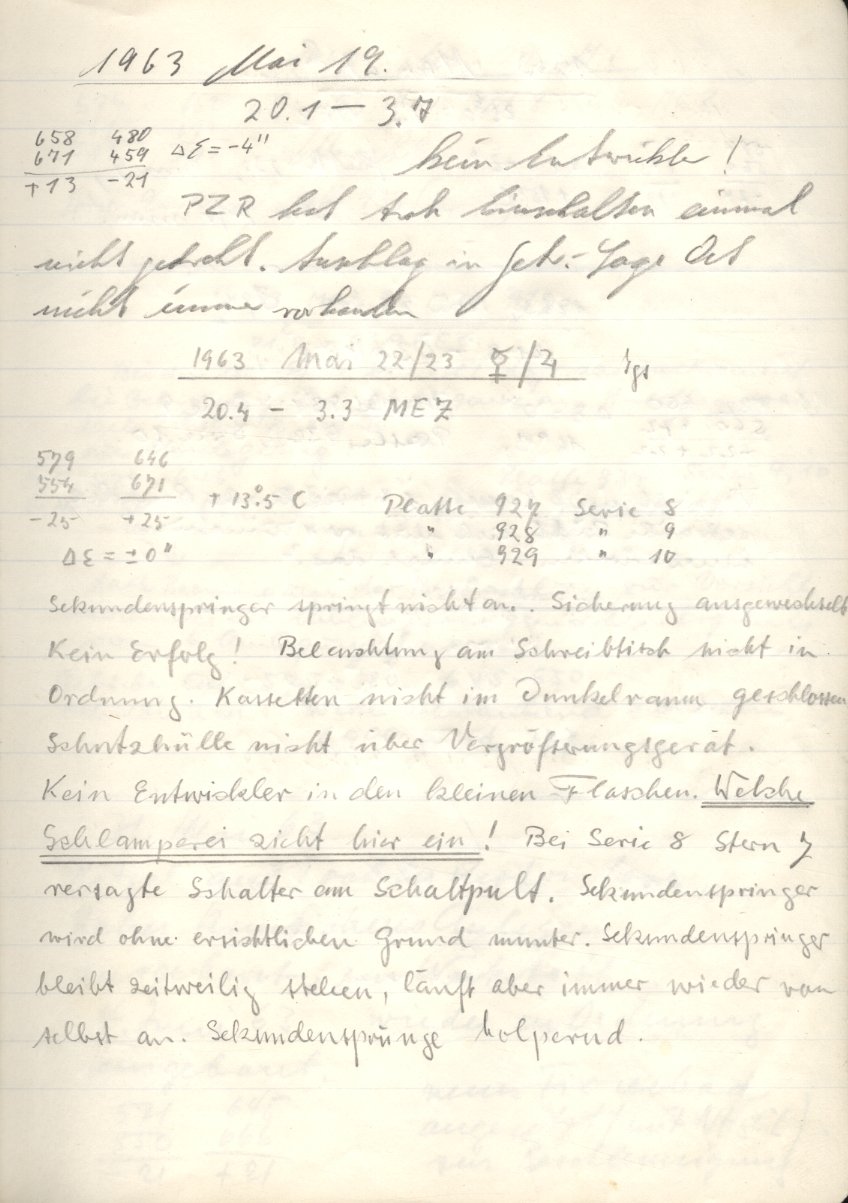 1963 Mai 19.
20.1 — 3.7
658 480
671 459 Δε = -4"
+13 -21
kein Entwickler!
PZR hat nach Einschalten einmal
nicht gedreht. Anschlag in Geb.-Lage Ost
nicht immer vorhanden
1963 Mai 22/23 ☿/♃
20.4 - 3.3 MEZ
579 646
554 671 + 13°.5 C
-25 +25
Δε = ±0"
Platte 927 Serie 8
" 928 " 9
" 929 " 10
Sekundenspringer springt nicht an. Sicherung ausgewechselt
Kein Erfolg! Beleuchtung am Schreibtisch nicht in
Ordnung. Kassetten nicht im Dunkelraum geschlossen
Schutzhülle nicht über Vergrößerungsgerät.
Kein Entwickler in den kleinen Flaschen. Welche
Schlamperei zieht hier ein! Bei Serie 8 Stern 7
versagte Schalter am Schaltpult. Sekundenspringer
wird ohne ersichtlichen Grund munter. Sekundenspringer
bleibt zeitweilig stehen, läuft aber immer wieder von
selbst an. Sekundensprünge holpernd.